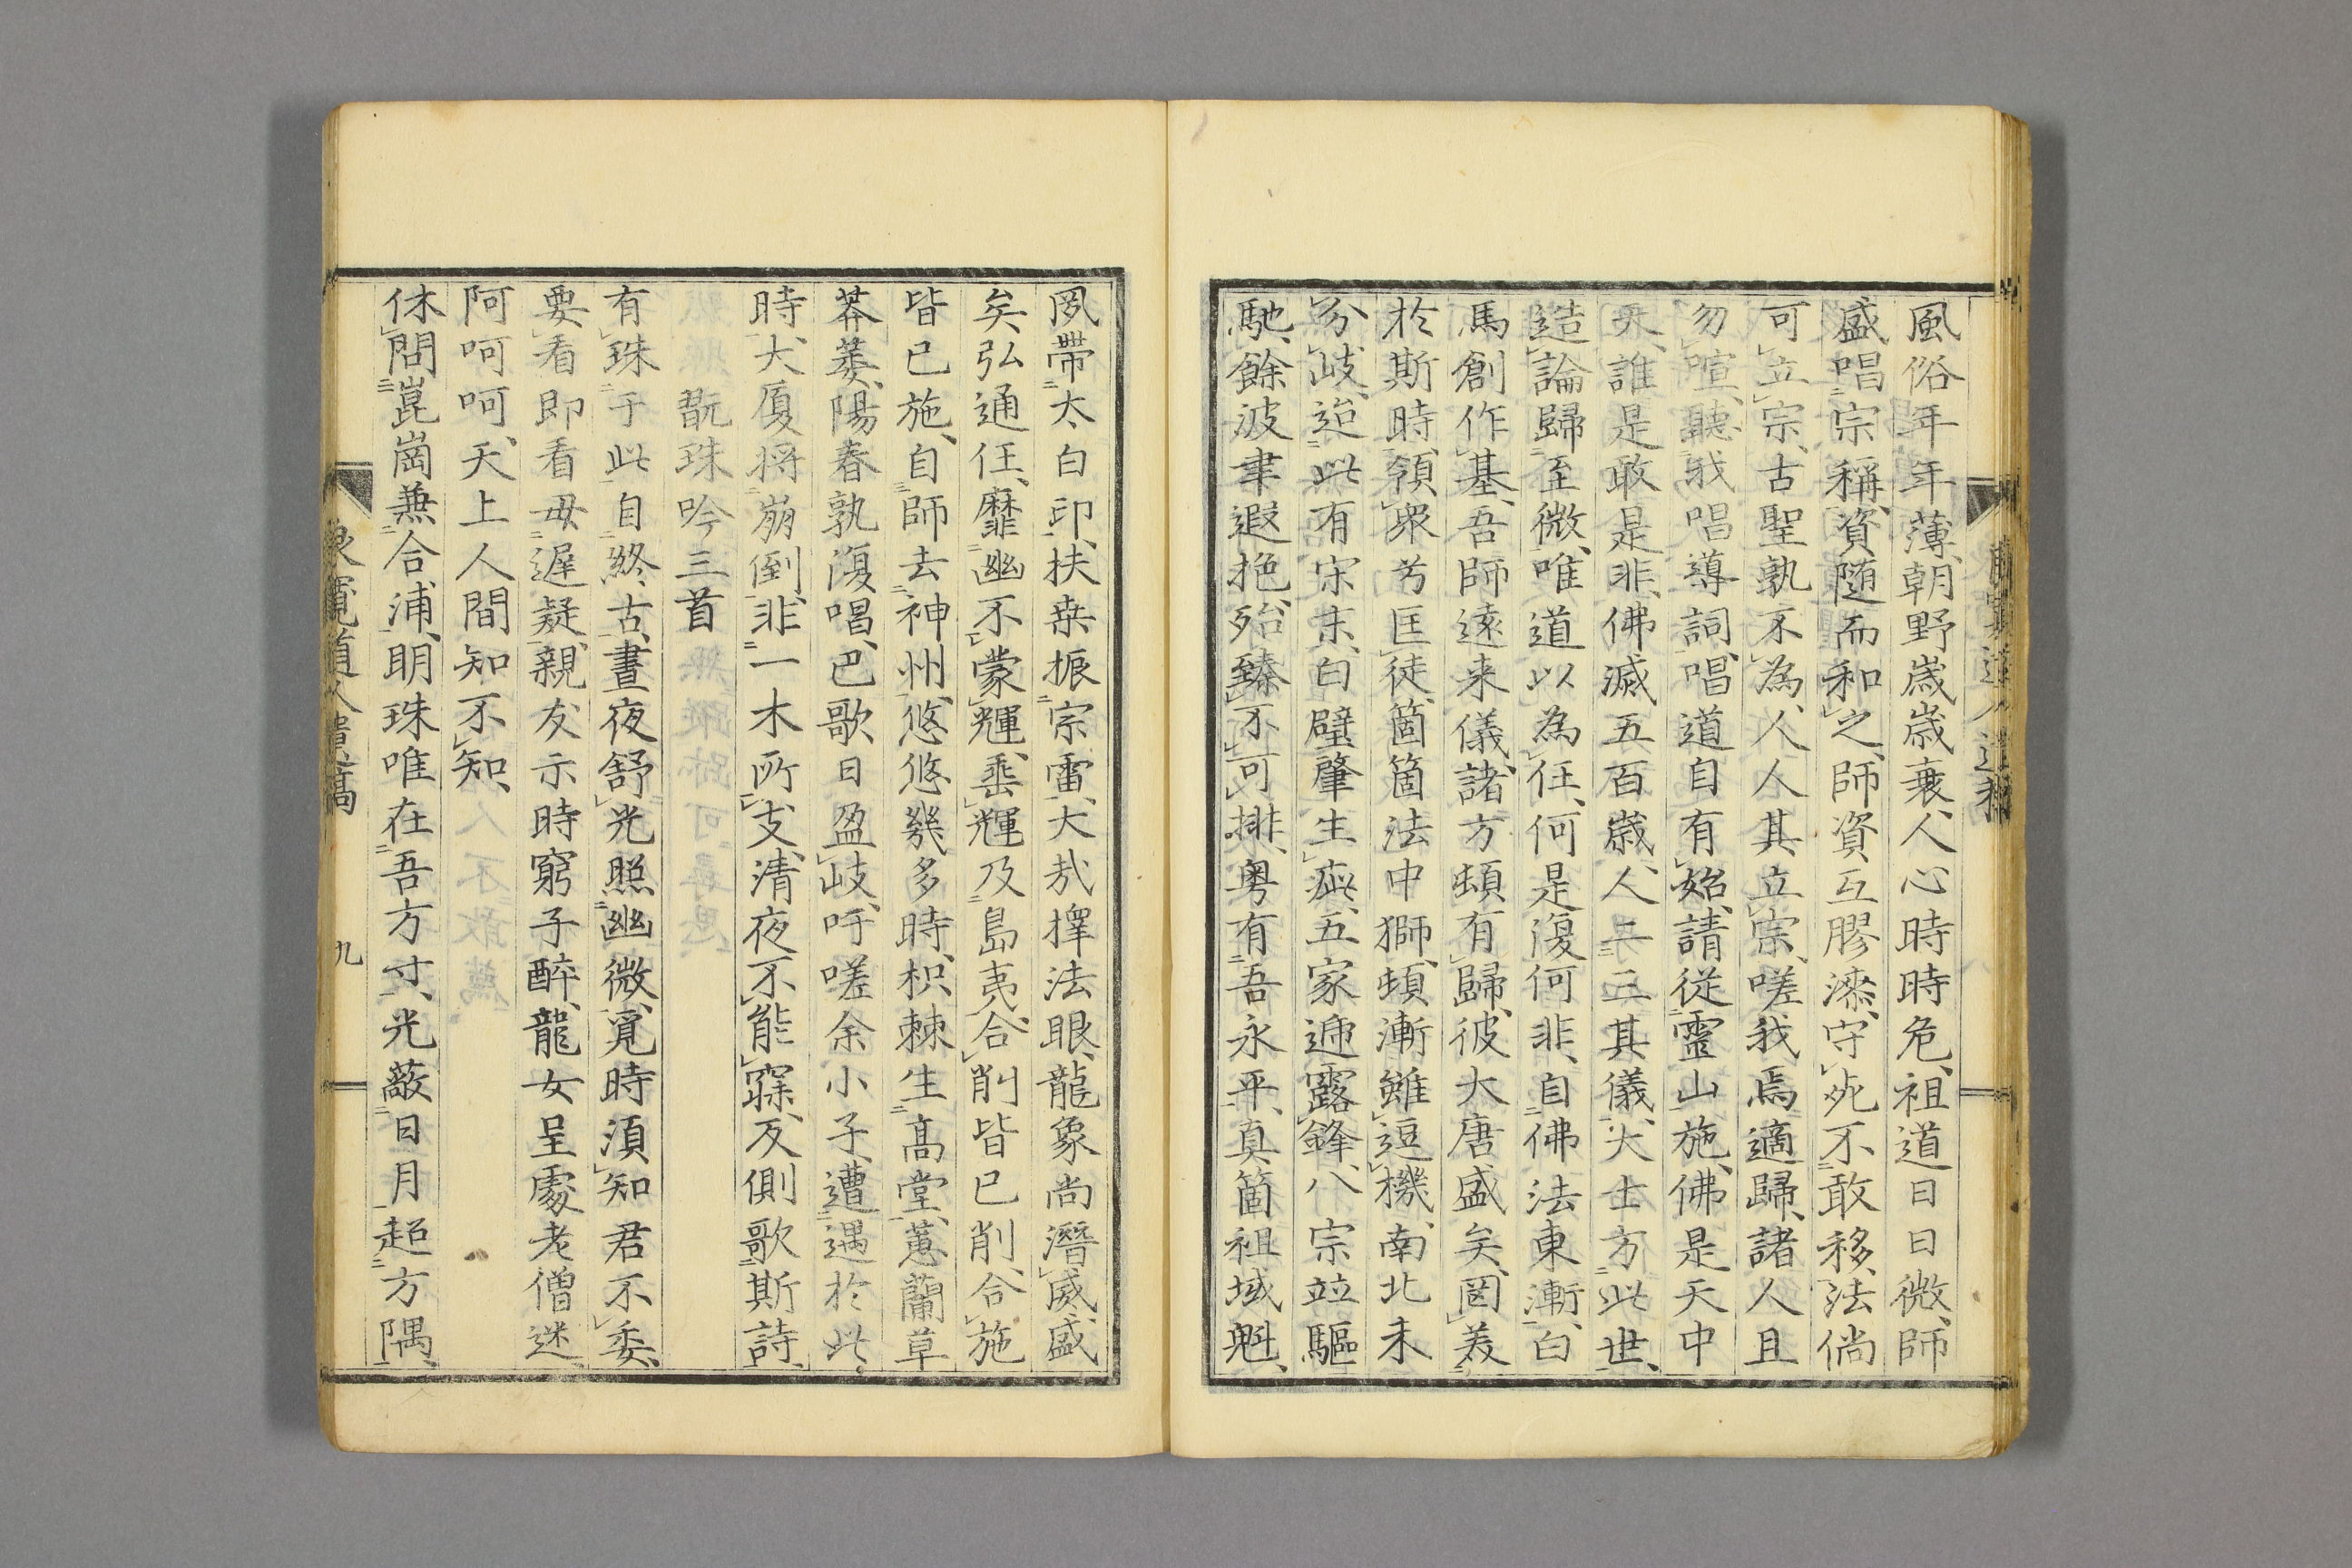 風俗年年薄、朝野歳歳衰、人心時時危、祖道日日微、師
盛唱宗稱、資隨而和之、師資互膠漆、守死不敢移、法倘
可立宗、古聖孰不為、人人其立宗、嗟我焉適歸、諸人且
勿喧、聽我唱導詞、唱道自有始、請從靈山施、佛是天中
天、誰是敢是非、佛滅五百歳、人二三其儀、大士方此世、
造論歸至微、唯道以為任、何是復何非、自佛法東漸、白
馬創作基、吾師遠来儀、諸方頓有歸、彼大唐盛矣、罔美
於斯時、領衆兮匡徒、箇箇法中獅、頓漸雖逗機、南北未
分岐、迨此有宋末、白璧肇生疵、五家遞露鋒、八宗竝驅
馳、餘波聿遐拖、殆臻不可排、粤有吾永平、真箇祖域魁、
夙帶太白印、扶桑振宗雷、大哉擇法眼、龍象尚潛威、盛
矣弘通任、靡幽不蒙輝、垂輝及島夷、合削皆已削、合施
皆已施、自師去神州、悠悠幾多時、枳棘生高堂、蕙蘭草
莽萎、陽春孰復唱、巴歌日盈岐、吁嗟余小子、遭遇於此
時、大厦将崩倒、非一木所支、清夜不能寐、反側歌斯詩、
翫珠吟三首
有珠于此自終古、晝夜舒光照幽微、覓時須知君不委、
要看即看毋遲疑、親友示時窮子醉、龍女呈處老僧迷、
阿呵呵、天上人間知不知、
休問崑崗兼合浦、明珠唯在吾方寸、光蔽日月超方隅、
道人遺稿
九